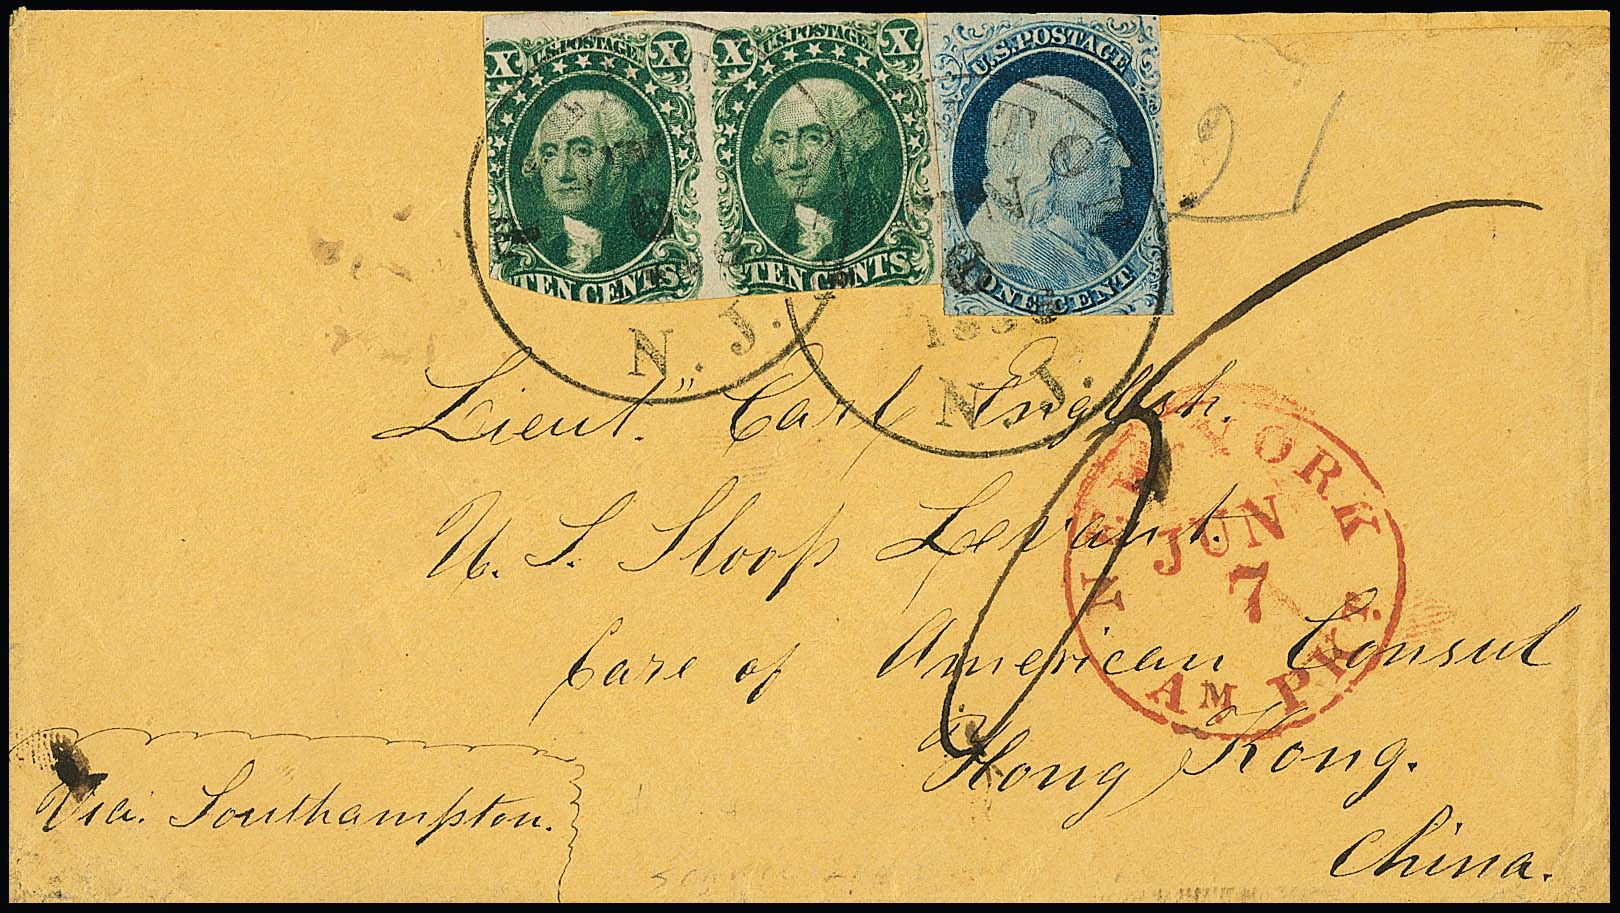 X U.S.POSTAGE X
X U.S.POSTAGE X
U.S.POSTAGE
TEN CENTS
TEN CENTS
ONE CENT
TON
N. J.
N. J.
21
5
Lieut. Earl English.
U. S. Sloop Levant.
Care of American Consul
Hong Kong.
China.
Via. Southampton.
NEW YORK
JUN
7
AM PKT.